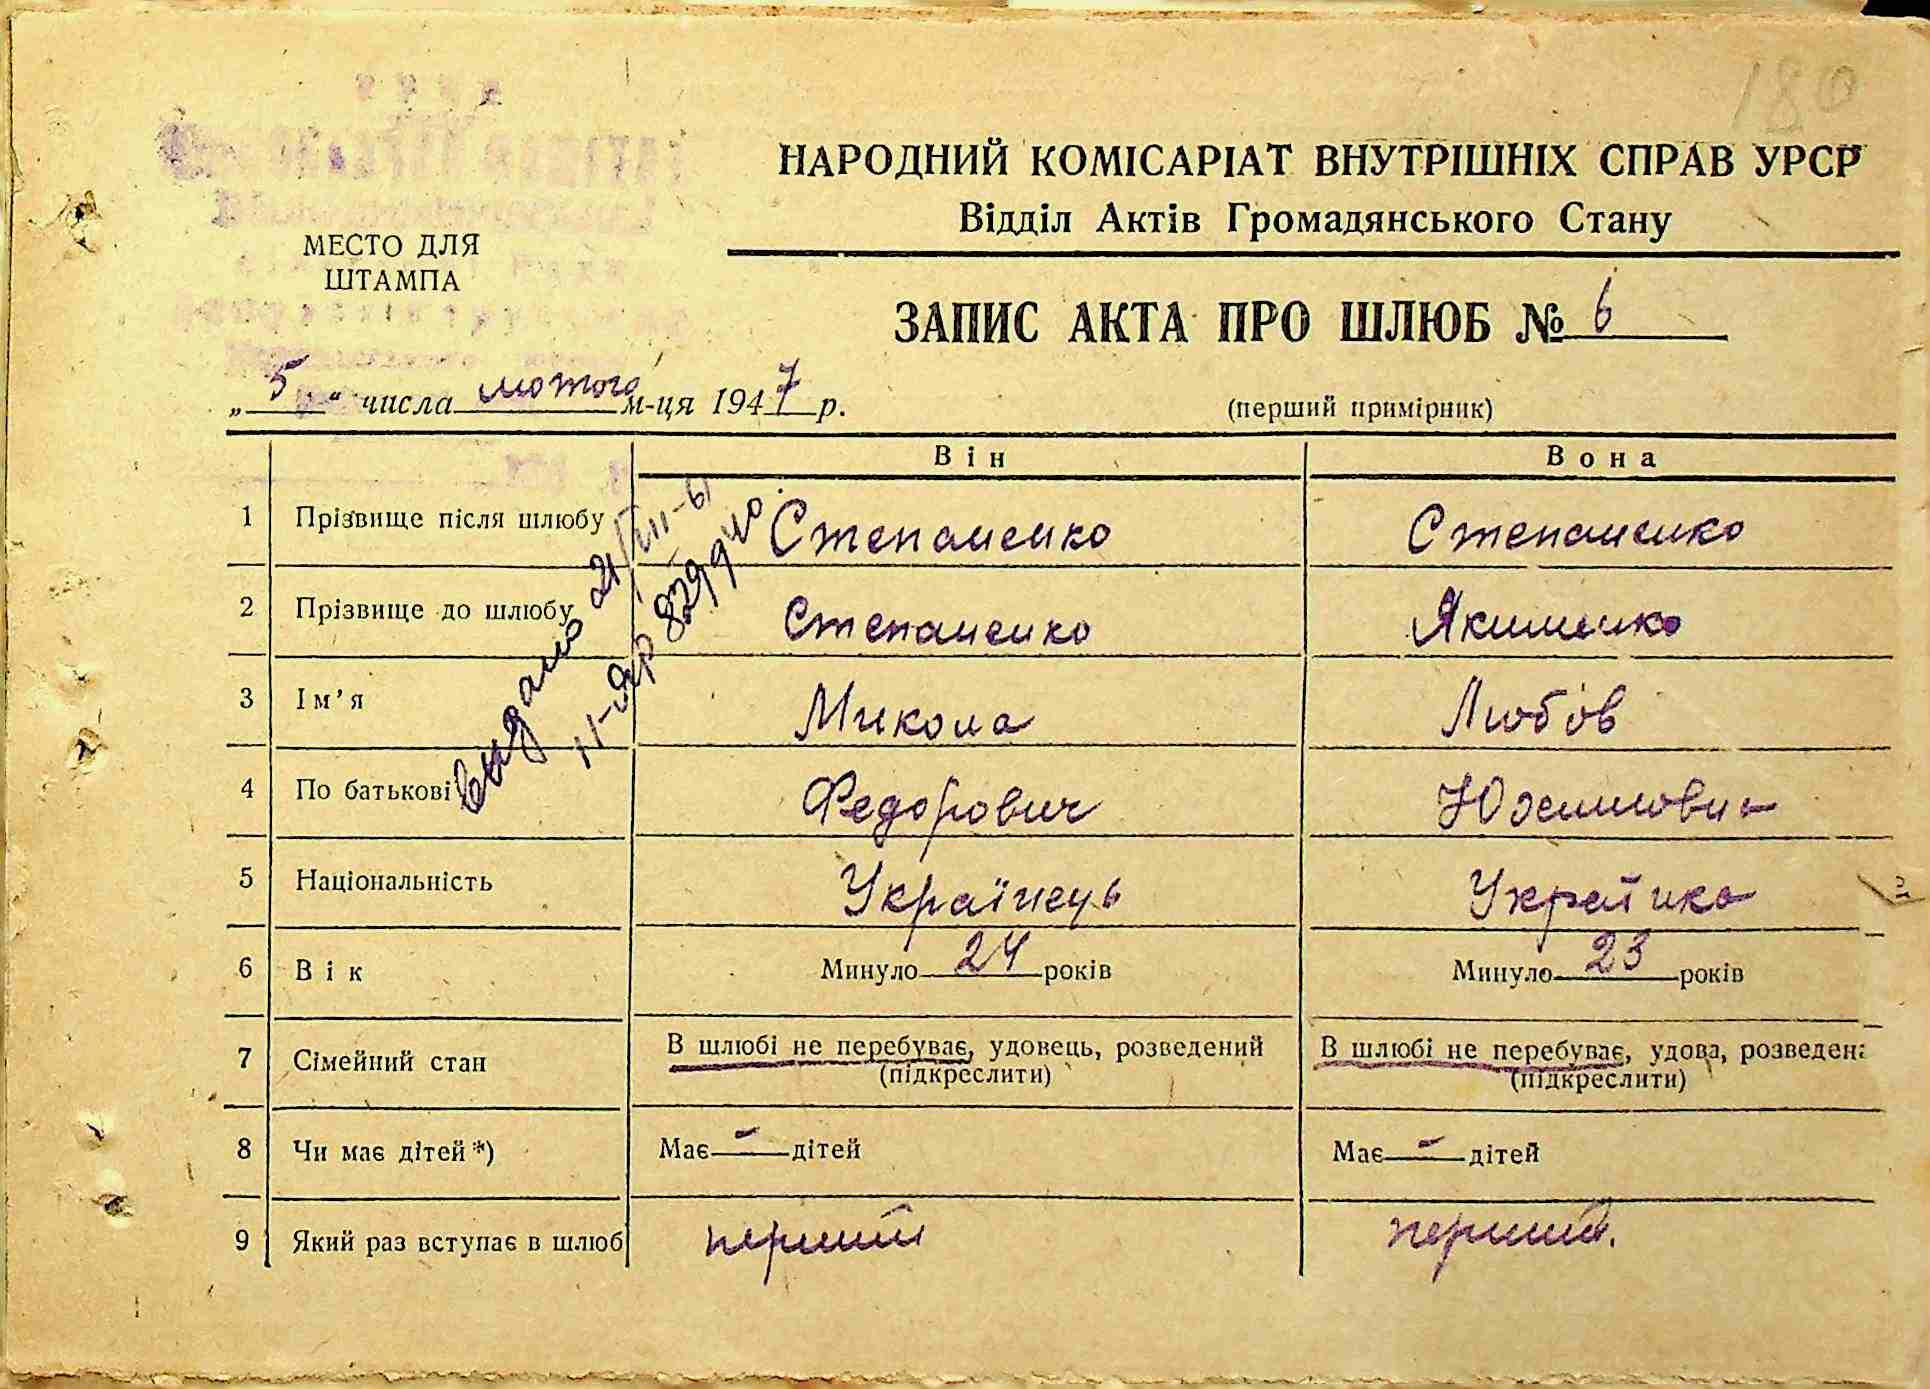 180
НАРОДНИЙ КОМІСАРІАТ ВНУТРІШНІХ СПРАВ УРСР
Відділ Актів Громадянського Стану
МЕСТО ДЛЯ
ШТАМПА
ЗАПИС АКТА ПРО ШЛЮБ № 6
„5“ числа лютого м-ця 1947 р.
(перший примірник)
Він Вона
1 Прізвище після шлюбу Степаненко Степаненко
2 Прізвище до шлюбу Степаненко Якименко
3 Ім'я Микола Любов
4 По батькові Федорович Юхимовна
5 Національність Українець Українка
6 Вік Минуло 24 років Минуло 23 років
7 Сімейний стан В шлюбі не перебуває, удовець, розведений В шлюбі не перебуває, удова, розведена
(підкреслити) (підкреслити)
8 Чи має дітей*) Має - дітей Має - дітей
9 Який раз вступає в шлюб перший перший.
видано 21/VIII-61
829940